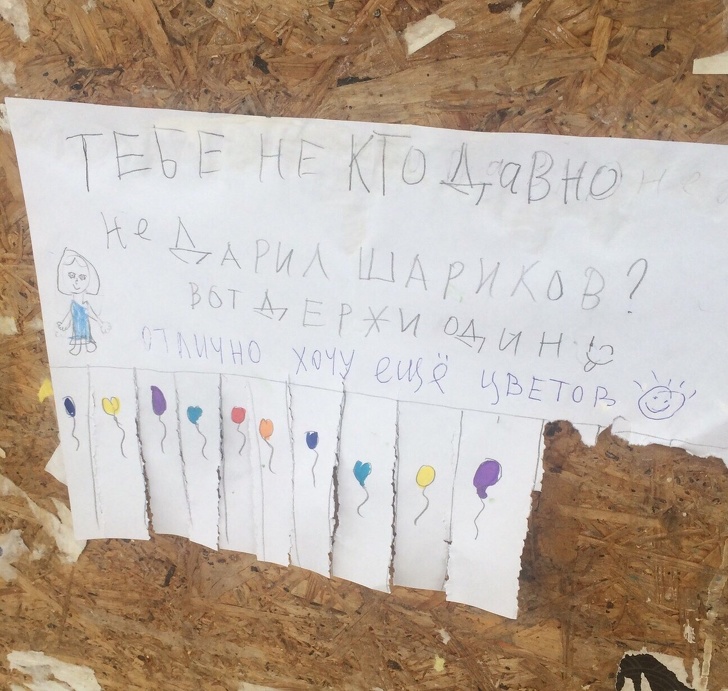 ТЕБЕ НЕ КТО ДаВНО
Не ДАРИЛ ШАРИКОВ?
ВОТ ДЕРЖИ ОДИН
ОТЛИЧНО ХОЧУ ЕЩЁ ЦВЕТОВ